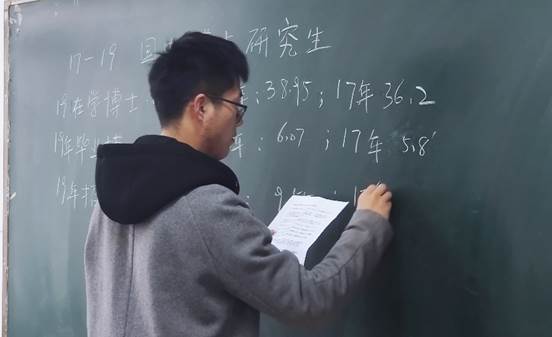 17-19 国 研究生
19在学博士 年;38.95;17年36.2
19年毕业博 年;6.07;17年 5.8
19年招 ;9 ;17